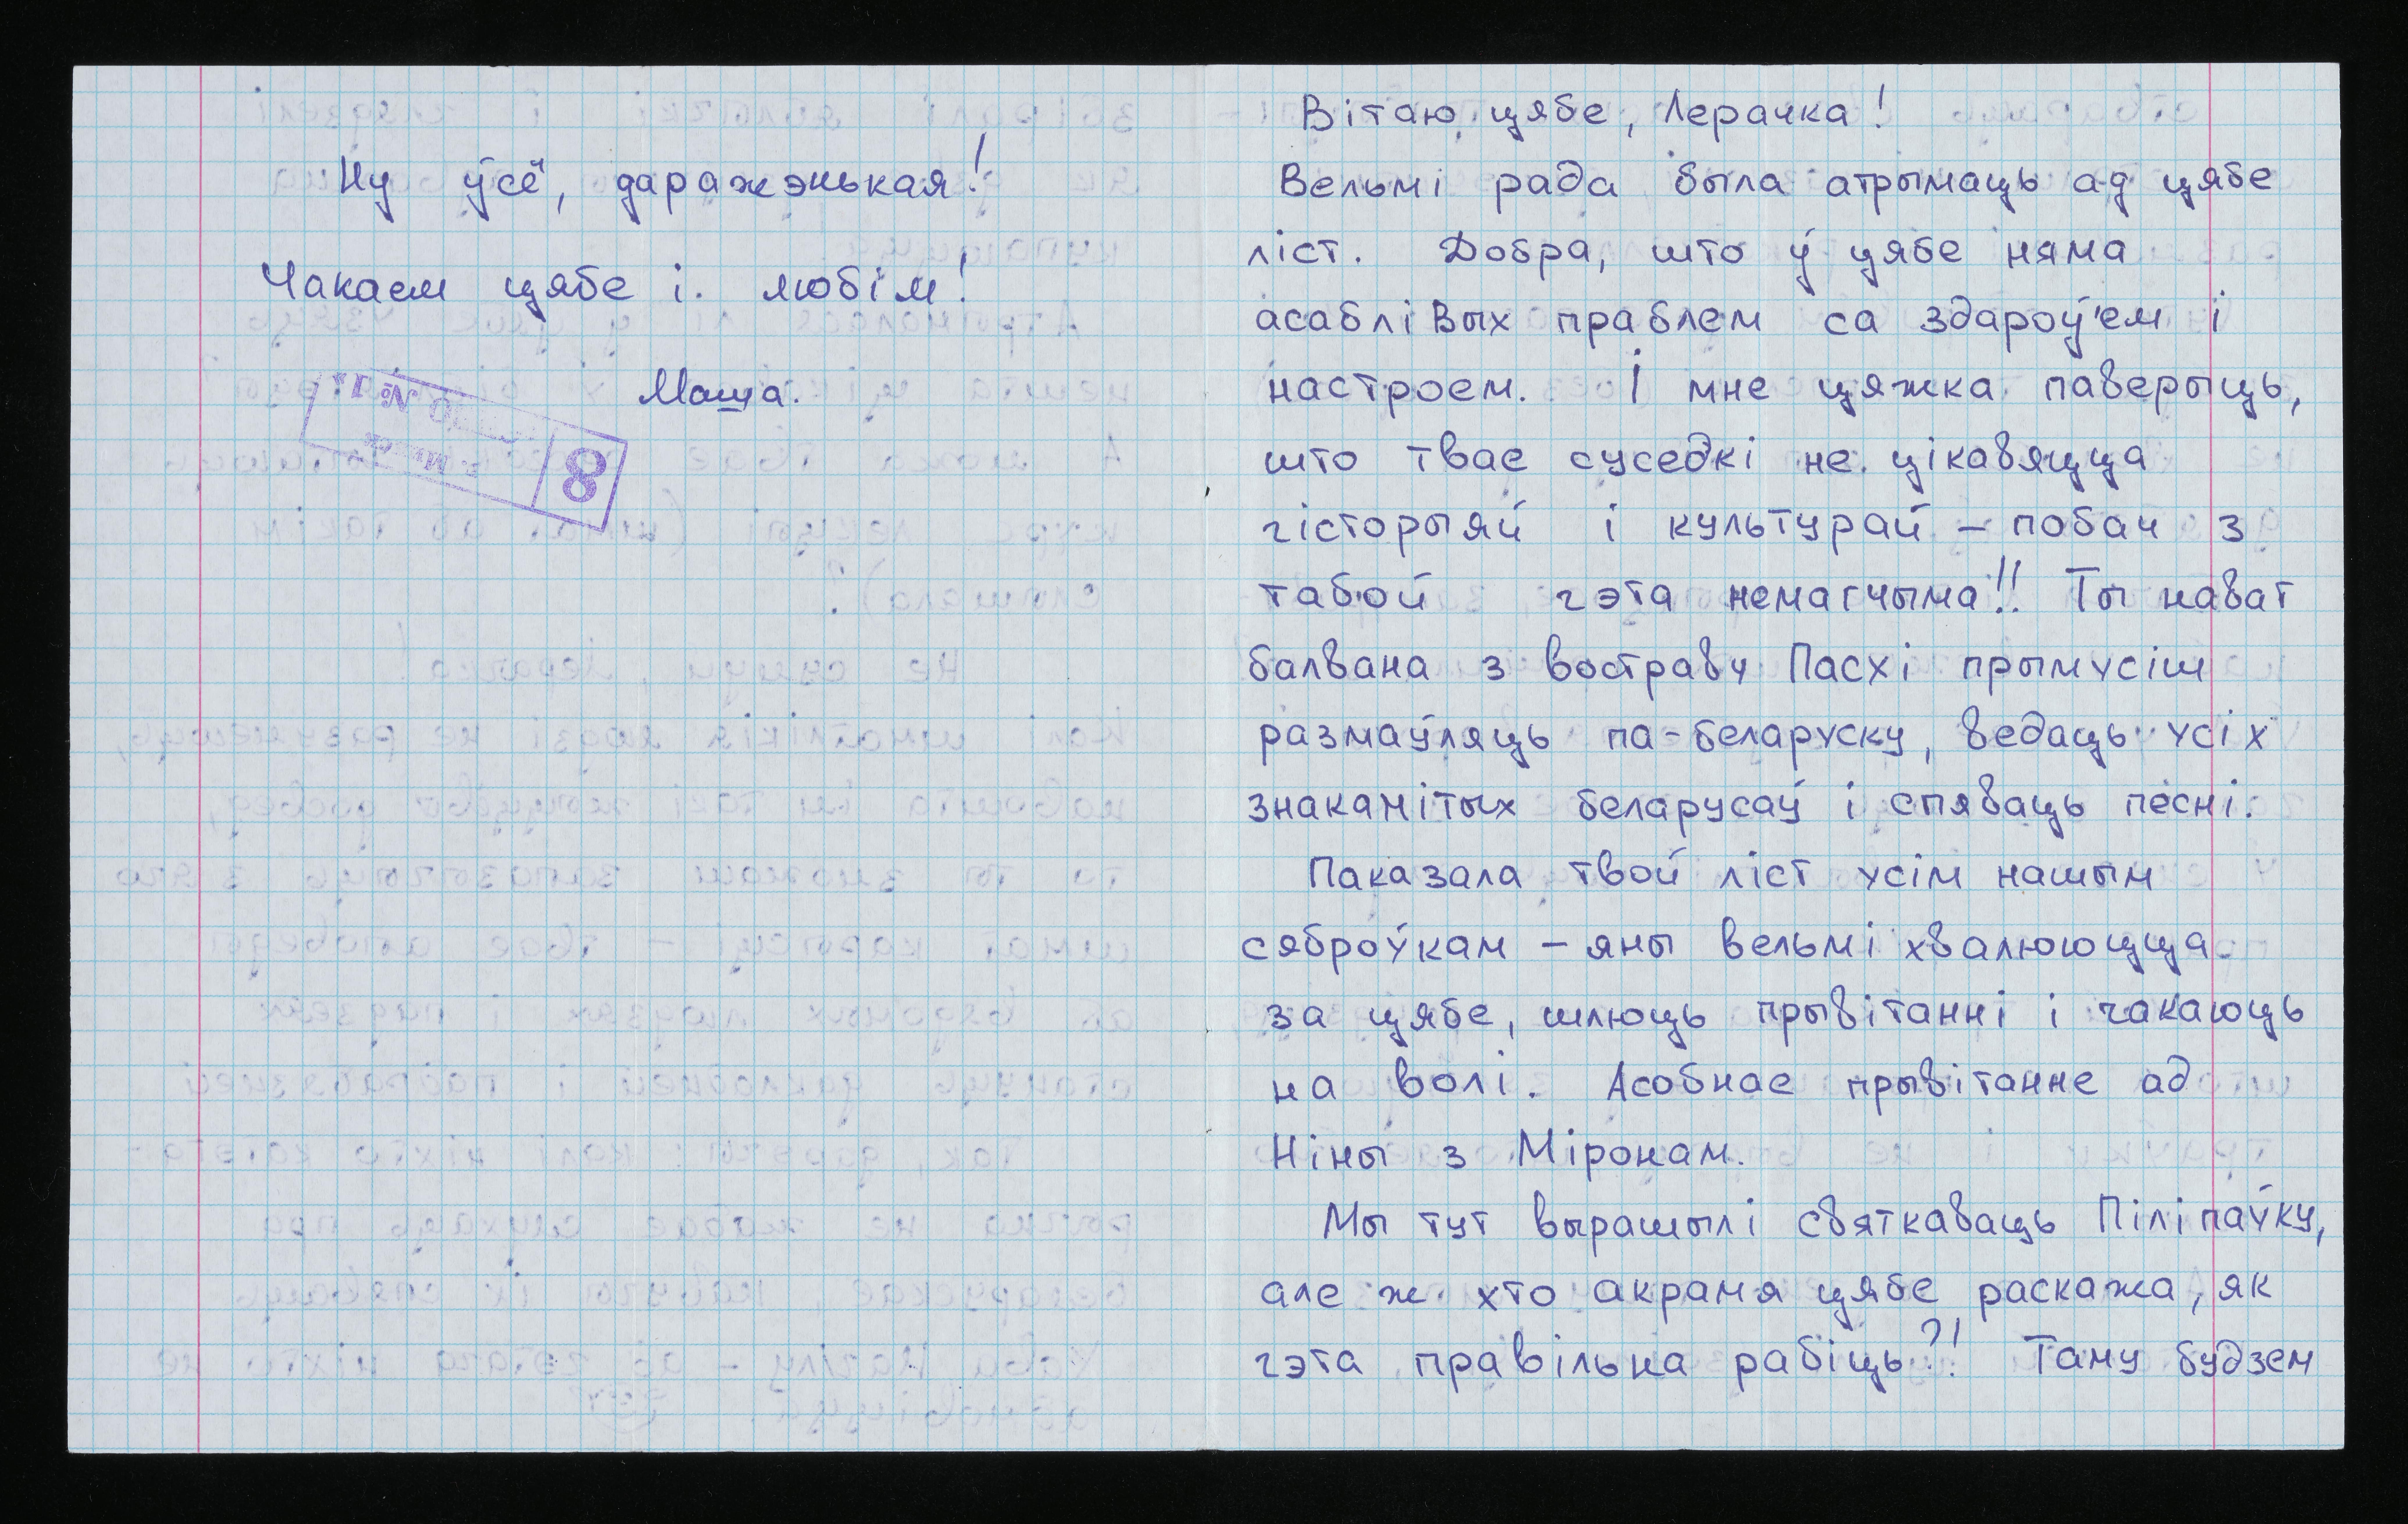 Ну ўсё, даражэнькая!
Чакаем цябе і. любім!
Маша.
8
г. Минск
№ 1"
Вітаю цябе, Лерачка!
Вельмі рада была атрымаць ад цябе
ліст. Добра, што ў цябе няма
асаблівых праблем са здароў'ем і
настроем. І мне цяжка паверыць,
што твае суседкі не цікавяцца
гісторыяй і культурай – побач з
табой гэта немагчыма!! Ты нават
балвана з востраву Пасхі прымусіш
размаўляць па-беларуску, ведаць усіх
знакамітых беларусаў і спяваць песні.
Паказала твой ліст усім нашым
сяброўкам – яны вельмі хвалююцца
за цябе, шлюць прывітанні і чакаюць
на волі. Асобнае прывітанне ад
Ніны з Міронам.
Мы тут вырашылі святкаваць Піліпаўку,
але ж хто акрамя цябе раскажа, як
гэта правільна рабіць?! Таму будзем